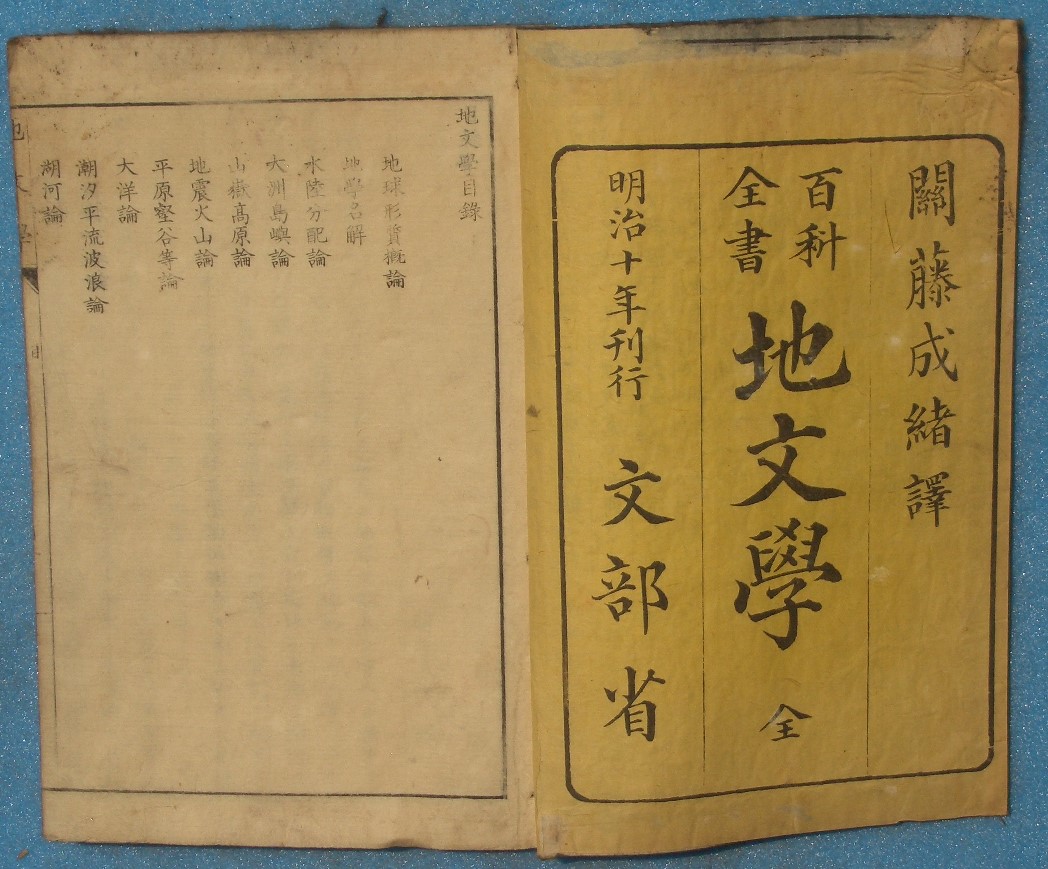 關藤成緒譯
百科
全書
地文學 全
明治十年刊行 文部省
地文學目錄
地球形質槪論
地學名解
水陸分配論
大洲島嶼論
山嶽高原論
地震火山論
平原壑谷等論
大洋論
潮汐平流波浪論
湖河論
地文學
目